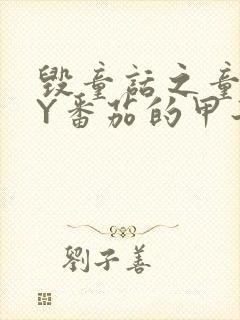 毁童话之童
Y番茄的甲
劉子善